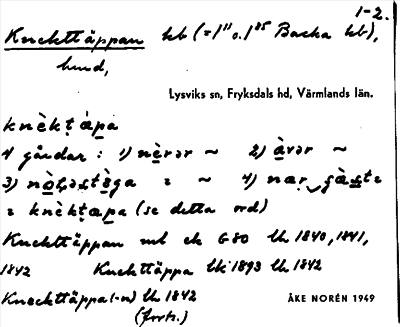 1-2.
Knekttäppan hb (=1¹¹ o. 1⁸⁵ Backa hb),
hmd,
Lysviks sn, Fryksdals hd, Värmlands län.
knèkṭápa
4 gårdar : 1) nèrər ~ 2) àvər ~
3) ~ 4) nær
= knèkṭapa (se detta ord)
Knekttäppan ml ek G80 lh 1840, 1841,
1842 Knekttäppa lk 1893 lh 1842
Kneckttäppa(-n) lh 1842
ÅKE NORÉN 1949
(förrh.)